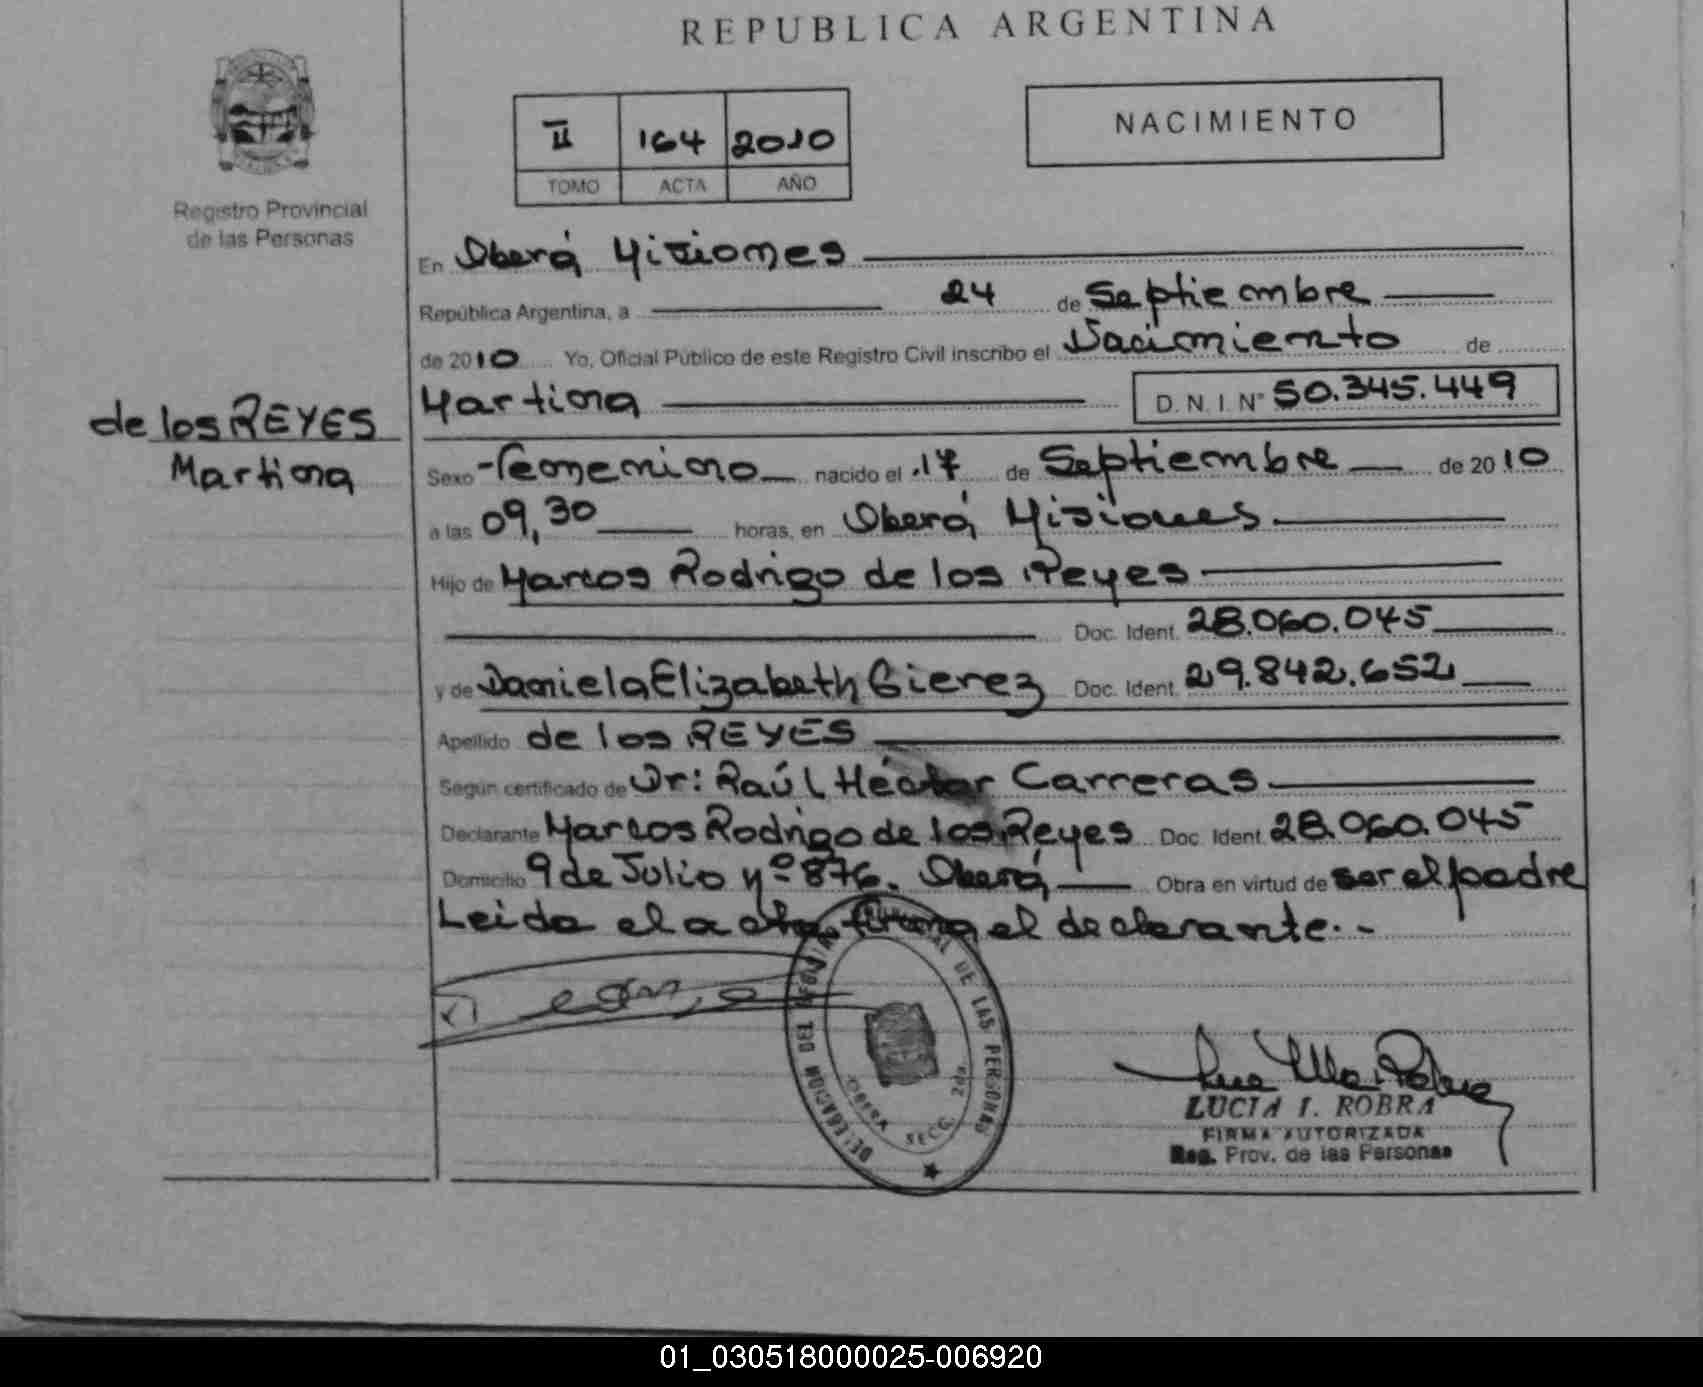 REPUBLICA ARGENTINA
II 164 2010
TOMO ACTA AÑO
NACIMIENTO
Registro Provincial
de las Personas
de los REYES
Martina
En Oberá Misiones
República Argentina, a 24 de Septiembre
de 2010 Yo, Oficial Público de este Registro Civil inscribo el Nacimiento de
Martina D. N. I. N° 50.345.449
Sexo Femenino nacido el 17 de Septiembre de 2010
a las 09,30 horas, en Oberá Misiones.
Hijo de Marcos Rodrigo de los Reyes
Doc. Ident. 28.060.045
y de Daniela Elizabeth Gierez Doc. Ident. 29.842.652
Apellido de los REYES
Según certificado de Dr: Raúl Héctor Carreras
Declarante Marcos Rodrigo de los Reyes Doc. Ident. 28.060.045
Domicilio 9 de Julio Nº 876. Oberá Obra en virtud de ser el padre
Leida el acta, firma el declarante.-
DELEGACION DEL REGISTRO PROVINCIAL DE LAS PERSONAS
OBERA SECC. 2da.
LUCIA I. ROBRA
FIRMA AUTORIZADA
Reg. Prov. de las Personas
01_030518000025-006920